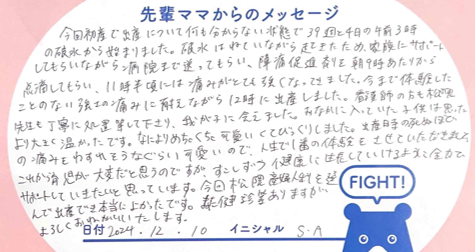 先輩ママからのメッセージ
今回初産で出産について何も分からない状態で39週と4日の午前3時
の破水から始まりました。破水はれていながら起きたため、家族にサポート
してもらいながら病院まで送ってもらい、陣痛促進剤を朝9時あたりから
点滴してもらい、11時半頃には痛みがとても強くなってきました。今まで体験した
ことのない強さの痛みに耐えながら12時に出産しました。看護師の方も松原
先生も丁寧に処置等して下さり、我が子に会えました。おなかに入っていた子供は思った
より大きく温かったです。なによりめちゃくちゃ可愛いくてびっくりしました。出産時の死ぬほど
の痛みをわすれそうなぐらい可愛いので、人生で1番の体験をさせていただきました。
これから育児が大変だと思うのですが、すこしずつ健康に生長していけるように全力で
サポートしていきたいと思っています。今回松原産婦人科を選
んで出産でき本当によかったです。健診等ありますが、
よろしくおねがいいたします。
FIGHT!
日付 2024.12.10 イニシャル S.A